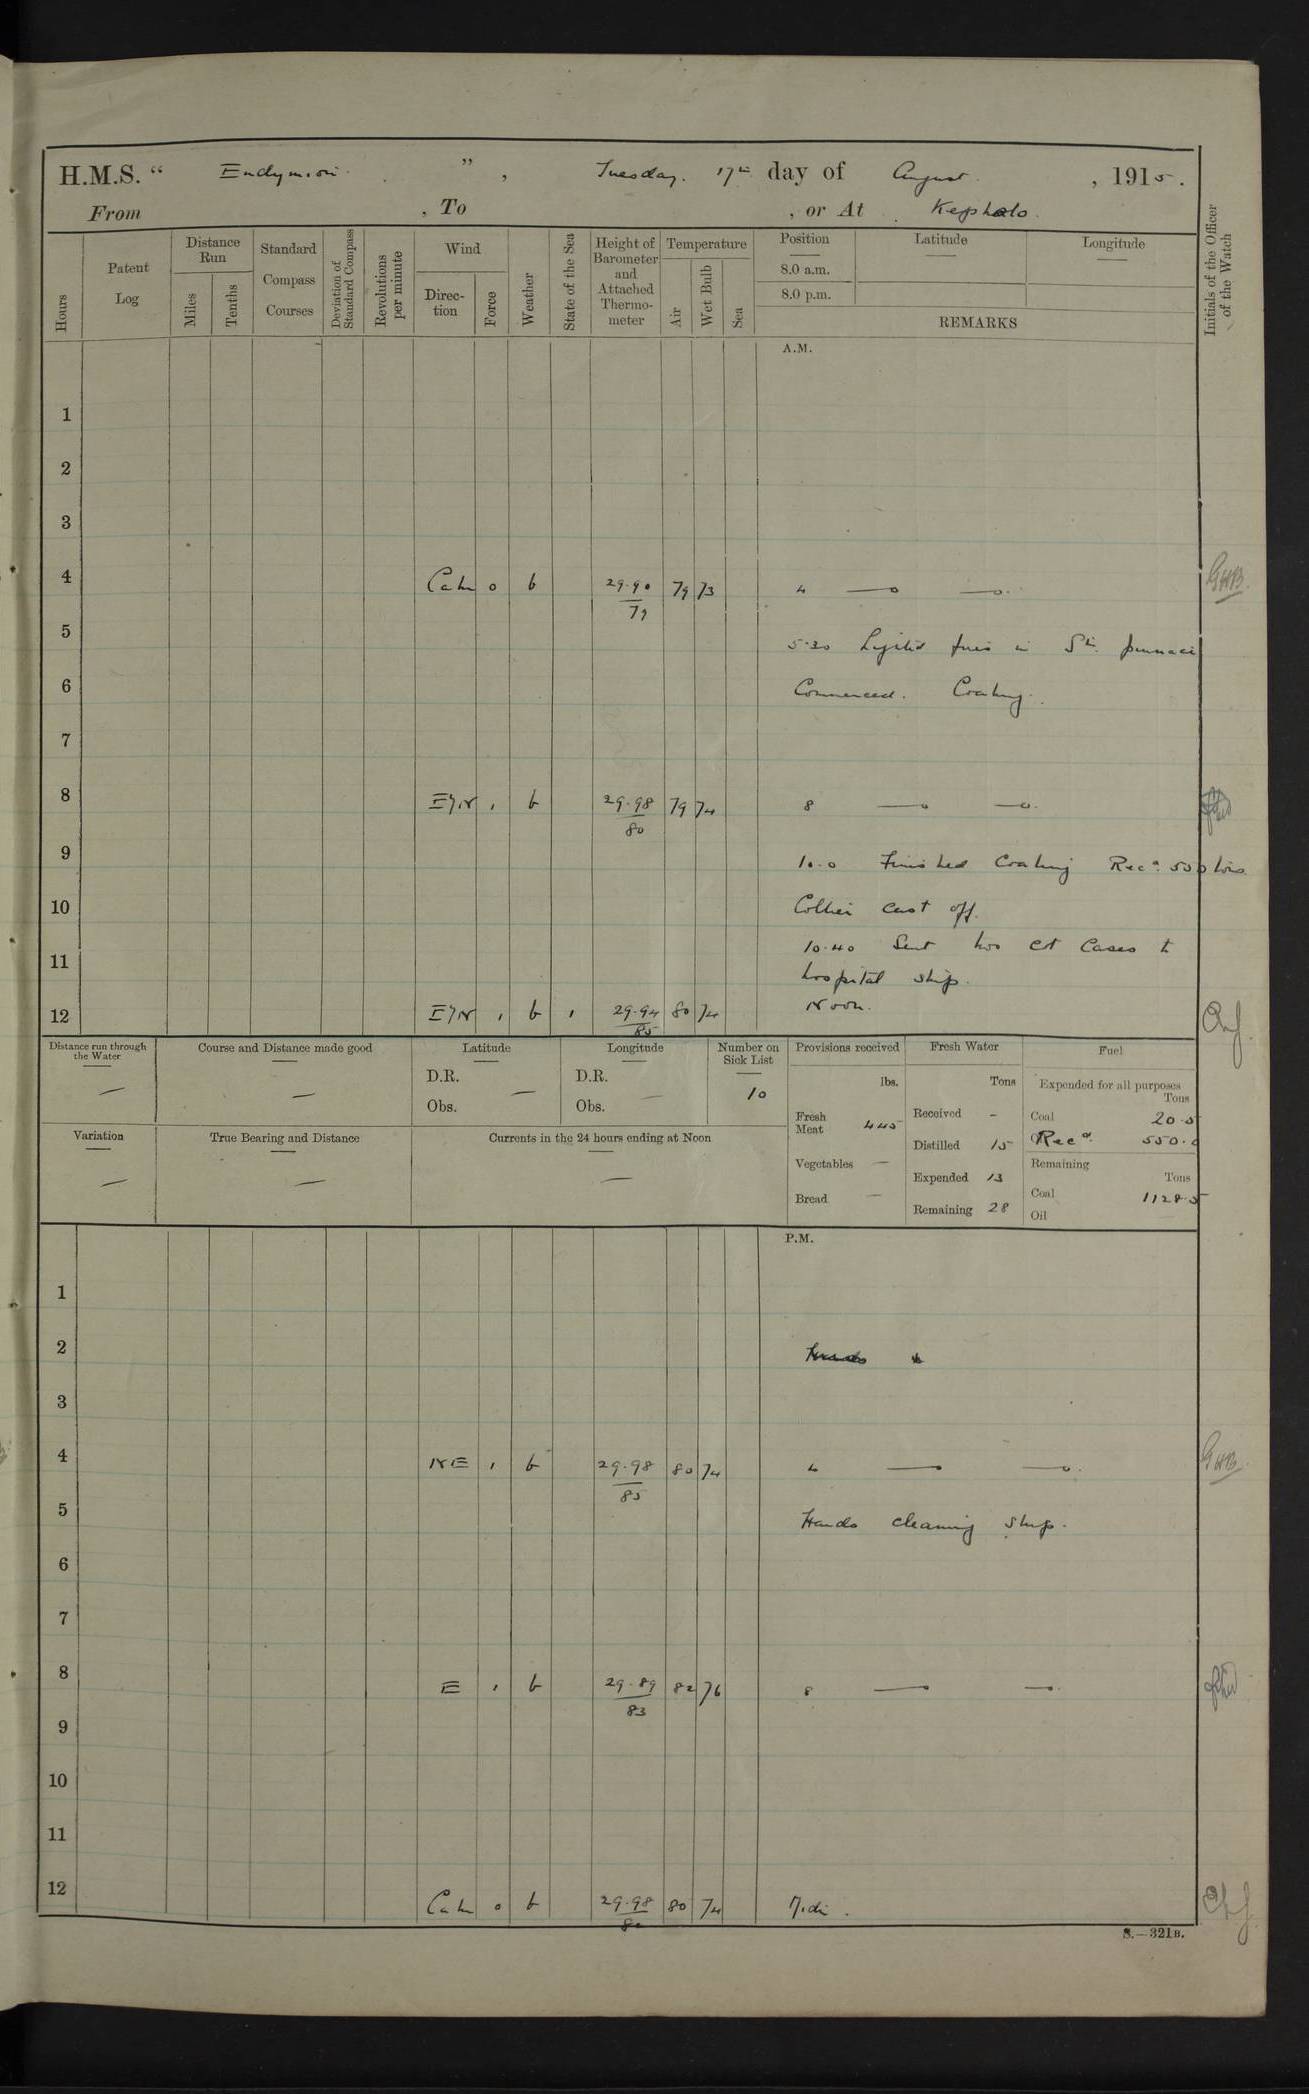 H.M.S. “ Endymion ” , Tuesday. 17th day of August , 1915.
From , To , or At Kephalo.
Hours
Patent Log
Distance Run
Miles
Tenths
Standard Compass Courses
Deviation of Standard Compass
Revolutions per minute
Wind
Direc- tion
Force
Weather
State of the Sea
Height of Barometer and Attached Thermo- meter
Temperature
Air
Wet Bulb
Sea
Position
8.0 a.m.
8.0 p.m.
Latitude
Longitude
REMARKS
Initials of the Officer of the Watch
A.M.
1
2
3
4 Calm 0 b 29.90 79 73 4 —o —o. GHB
79
5 5.30 Lighted fires in St. pinnace
6 Commenced. Coaling.
7
8 E'ly N 1 b 29.98 79 74 8 —o —o.
80
9 10.0 Finished Coaling Recd. 550 tons
10 Collier cast off.
10.40 Sent two cot cases to
11 hospital ship.
12 E'ly N 1 b 1 29.94 80 74 Noon.
85
Distance run through the Water
—
Course and Distance made good
—
Latitude
D.R.
Obs. —
Longitude
D.R.
Obs. —
Number on Sick List
10
Variation
—
True Bearing and Distance
—
Currents in the 24 hours ending at Noon
—
Provisions received
lbs.
Fresh Meat 445
Vegetables —
Bread —
Fresh Water
Tons
Received -
Distilled 15
Expended 13
Remaining 28
Fuel
Expended for all purposes
Tons
Coal 20.5
Recd. 550.0
Remaining
Tons
Coal 1128.5
Oil
P.M.
1
2 Hands
3
4 NE 1 b 29.98 80 74 4 — —o. GHB
85
5 Hands cleaning ship.
6
7
8 E 1 b 29.89 82 76 8 —o —.
83
9
10
11
12 Calm 0 b 29.98 80 74 Mid.
80
S.—321B.